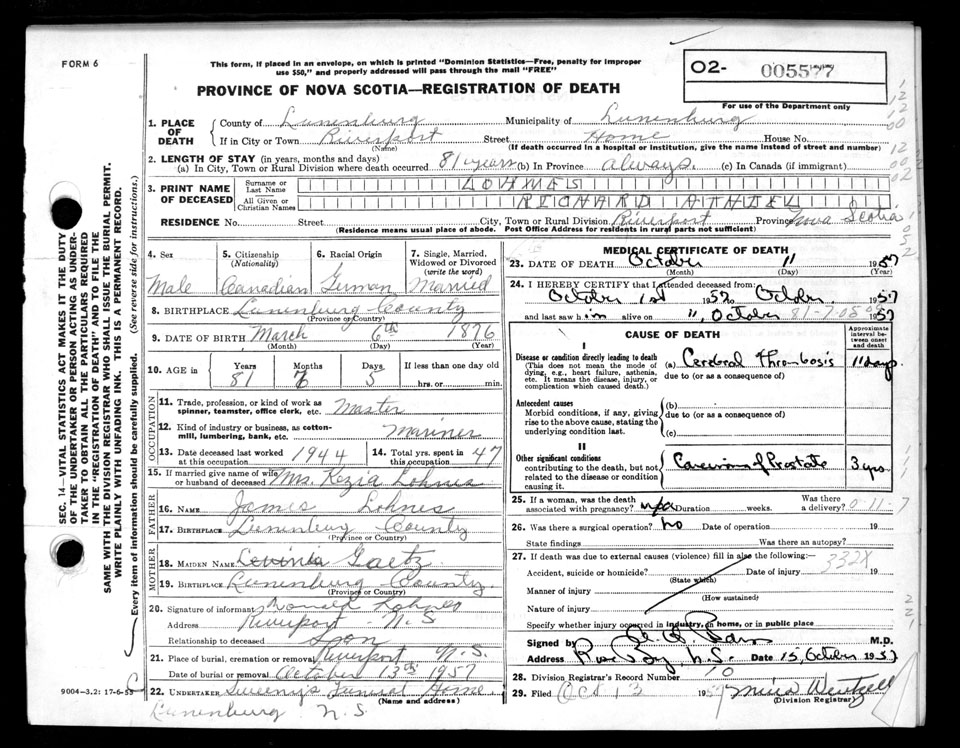 FORM 6
This form, if placed in an envelope, on which is printed "Dominion Statistics—Free, penalty for improper
use $50," and properly addressed will pass through the mail "FREE"
O2- 005577
For use of the Department only
PROVINCE OF NOVA SCOTIA—REGISTRATION OF DEATH
SEC. 14—VITAL STATISTICS ACT MAKES IT THE DUTY
OF THE UNDERTAKER OR PERSON ACTING AS UNDER-
TAKER TO OBTAIN ALL THE PARTICULARS REQUIRED
IN THE "REGISTRATION OF DEATH" AND TO FILE THE
SAME WITH THE DIVISION REGISTRAR WHO SHALL ISSUE THE BURIAL PERMIT.
WRITE PLAINLY WITH UNFADING INK. THIS IS A PERMANENT RECORD.
Every item of information should be carefully supplied. (See reverse side for instructions.)
1. PLACE OF DEATH
County of Lunenburg Municipality of Lunenburg
If in City or Town Riverport Street Home House No.
(Name) (If death occurred in a hospital or institution, give the name instead of street and number)
2. LENGTH OF STAY (in years, months and days)
(a) In City, Town or Rural Division where death occurred 81 years (b) In Province always. (c) In Canada (if immigrant)
3. PRINT NAME OF DECEASED
Surname or Last Name LOHNES
All Given or Christian Names RICHARD ATHIEL
RESIDENCE No. Street City, Town or Rural Division Riverport Province Nova Scotia
(Residence means usual place of abode. Post Office Address for residents in rural parts not sufficient)
4. Sex 5. Citizenship (Nationality) 6. Racial Origin 7. Single, Married, Widowed or Divorced (write the word)
Male Canadian German Married
8. BIRTHPLACE Lunenburg County
(Province or Country)
9. DATE OF BIRTH March 6th 1876
(Month) (Day) (Year)
10. AGE in Years Months Days If less than one day old
81 7 5 hrs. or min.
OCCUPATION
11. Trade, profession, or kind of work as
spinner, teamster, office clerk, etc. Master
12. Kind of industry or business, as cotton-
mill, lumbering, bank, etc. Mariner
13. Date deceased last worked at this occupation 1944 14. Total yrs. spent in this occupation 47
15. If married give name of wife
or husband of deceased Mrs. Kezia Lohnes
FATHER
16. NAME James Lohnes
17. BIRTHPLACE Lunenburg County
(Province or Country)
MOTHER
18. MAIDEN NAME Levinia Gaetz
19. BIRTHPLACE Lunenburg County.
(Province or Country)
20. Signature of informant Ronald Lohnes
Address Riverport - N.S
Relationship to deceased Son
21. Place of burial, cremation or removal Riverport N.S.
Date of burial or removal October 13th 1957
22. UNDERTAKER Sweeny's Funeral Home
(Name and address)
Lunenburg N.S
9004-3.2: 17-6-55
MEDICAL CERTIFICATE OF DEATH
23. DATE OF DEATH October 11 1957
(Month) (Day) (Year)
24. I HEREBY CERTIFY that I attended deceased from:
October 1st 1957 to October. 1957
and last saw him alive on 11, October 1957
CAUSE OF DEATH
Approximate interval between onset and death
I
Disease or condition directly leading to death
(This does not mean the mode of
dying, e.g., heart failure, asthenia,
etc. It means the disease, injury, or
complication which caused death.)
(a) Cerebral thrombosis 11 days
due to (or as a consequence of)
Antecedent causes
Morbid conditions, if any, giving
rise to the above cause, stating the
underlying condition last.
(b)
due to (or as a consequence of)
(c)
II
Other significant conditions
contributing to the death, but not
related to the disease or condition
causing it.
Carcinoma of Prostate 3 yrs.
25. If a woman, was the death
associated with pregnancy? n/a Duration weeks. Was there a delivery?
26. Was there a surgical operation? no Date of operation 19
State findings Was there an autopsy?
27. If death was due to external causes (violence) fill in also the following: 332X
Accident, suicide or homicide? Date of injury 19
(State which)
Manner of injury
(How sustained)
Nature of injury
Specify whether injury occurred in industry, in home, or in public place
Signed by M.D.
Address Rose Bay, N.S. Date 15, October 1957
28. Division Registrar's Record Number 10
29. Filed Oct 13 1957 Mina Wentzell
(Division Registrar)